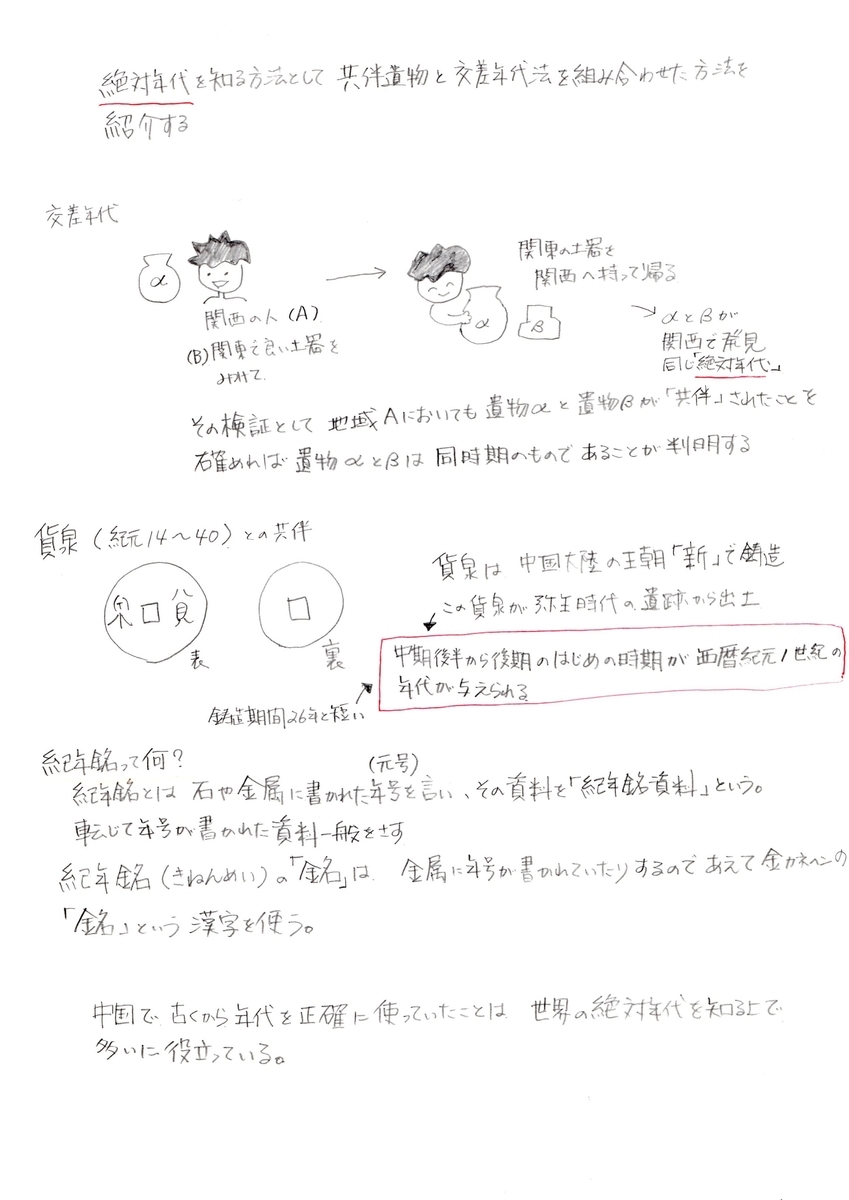 絶対年代を知る方法として 共伴遺物と交差年代法を組み合わせた方法を
紹介する
交差年代
α
関西の人(A)
(B)関東で良い土器を
みつけて
α
β
関東の土器を
関西へ持って帰る
αとβが
関西で発見
同じ「絶対年代」
その検証として 地域Aにおいても 遺物αと遺物βが「共伴」されたことを
確めれば 遺物αとβは 同時期のものであることが判明する
貨泉(紀元14〜40)との共伴
泉 貨
表
裏
鋳造期間26年と短い
貨泉は 中国大陸の王朝「新」で鋳造
この貨泉が弥生時代の遺跡から出土
中期後半から後期のはじめの時期が 西暦紀元1世紀の
年代が与えられる
紀年銘って何?
(元号)
紀年銘とは 石や金属に書かれた年号を言い、その資料を「紀年銘資料」という。
転じて年号が書かれた資料一般をさす
紀年銘(きねんめい)の「銘」は 金属に年号が書かれていたりするので あえて金カネヘンの
「銘」という漢字を使う。
中国で 古くから年代を正確に使っていたことは 世界の絶対年代を知る上で
多いに役立っている。